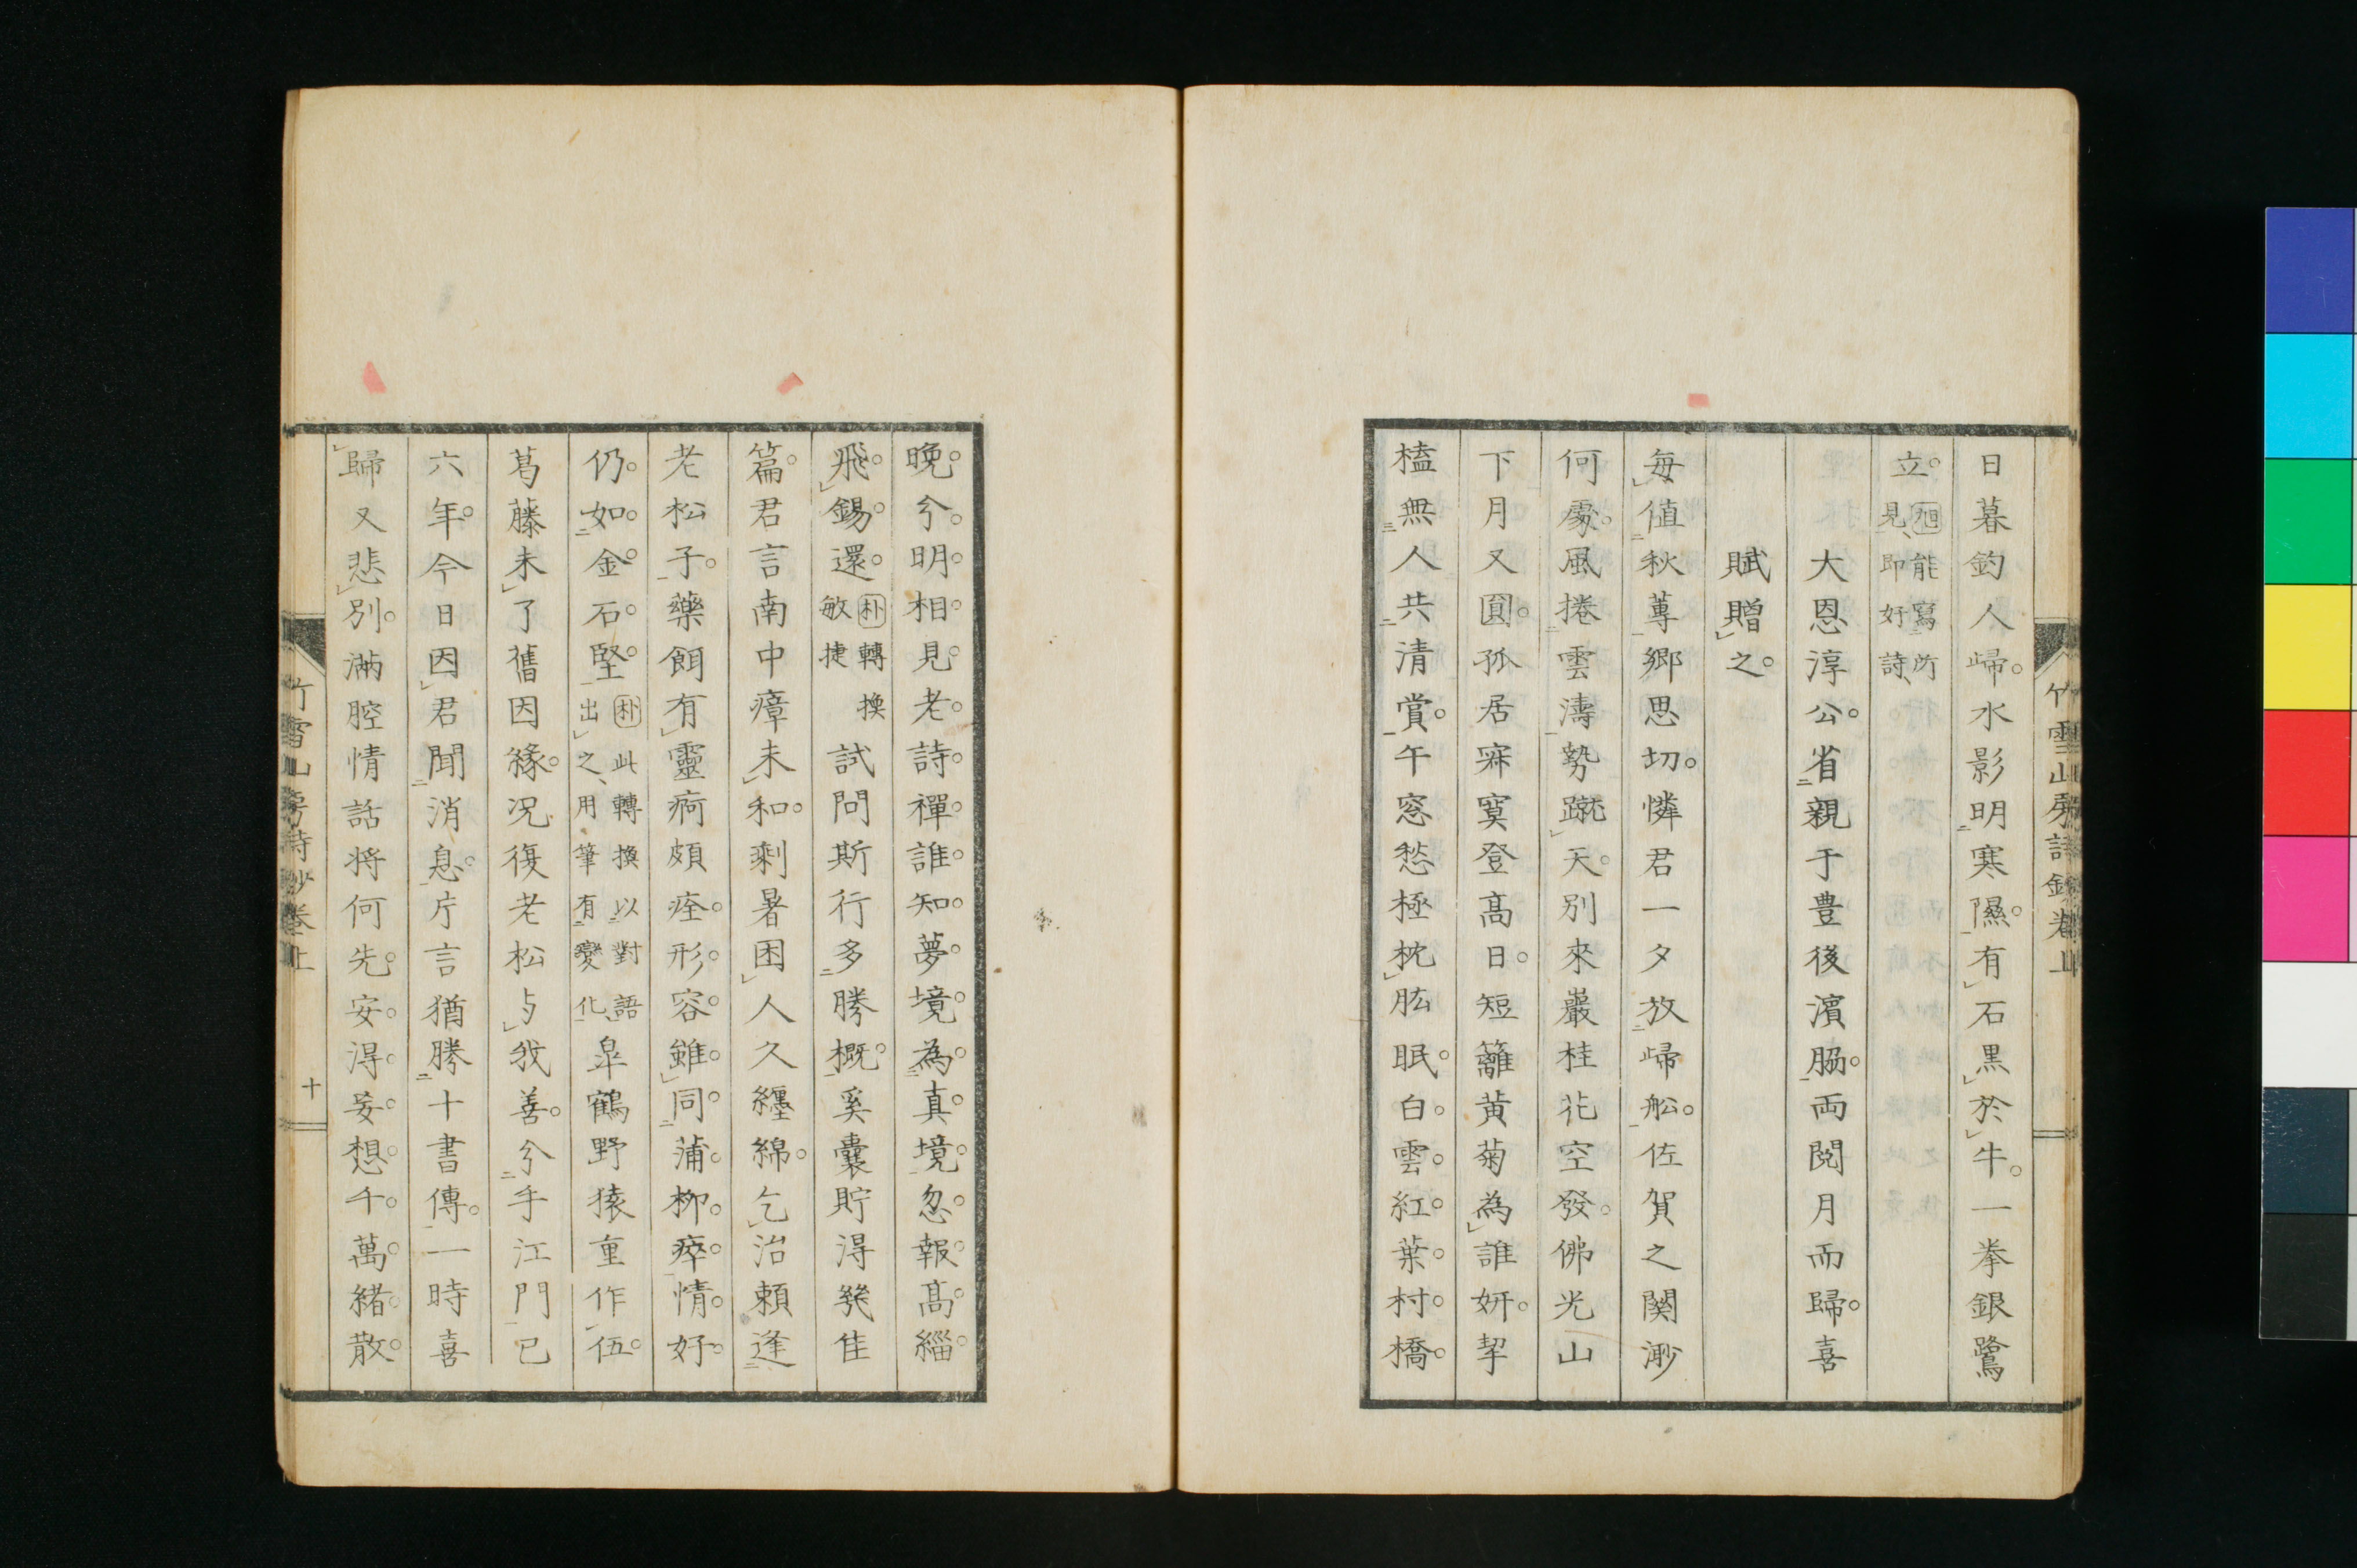 日暮釣人帰。水影明寒隰。有石黒於牛。一拳銀鷺
立。旭能寫所見、即好詩、
大恩淳公。省親于豊後濱脇。両閲月而歸。喜
賦贈之。
毎値秋蓴郷思切。憐君一夕放帰船。佐賀之関渺
何處。風捲雲濤勢蹴天。別來巖桂花空發。佛光山
下月又圓。孤居寂寞登髙日。短籬黄菊為誰妍。挈
榼無人共清賞。午窓愁極枕肱眠。白雲紅葉村橋
竹雪山房詩鈔卷上
晩。兮明相見老詩禪。誰知夢境為真境。忽報髙緇
飛錫還。朴轉換敏捷試問斯行多勝概。奚囊貯得幾佳
篇。君言南中瘴未和。剩暑困人久纏綿。乞治頼逢
老松子。藥餌有靈痾頗痊。形容雖同蒲柳瘁。情好
仍如金石堅。朴此轉換以對語出之、用筆有變化、皐鶴野猿重作伍。
葛藤未了舊因緣。况復老松与我善。分手江門已
六年。今日因君聞消息。片言猶勝十書傳。一時喜
歸又悲別。滿腔情話将何先。安得妄想千萬緒散。
竹雪山房詩鈔卷上
十